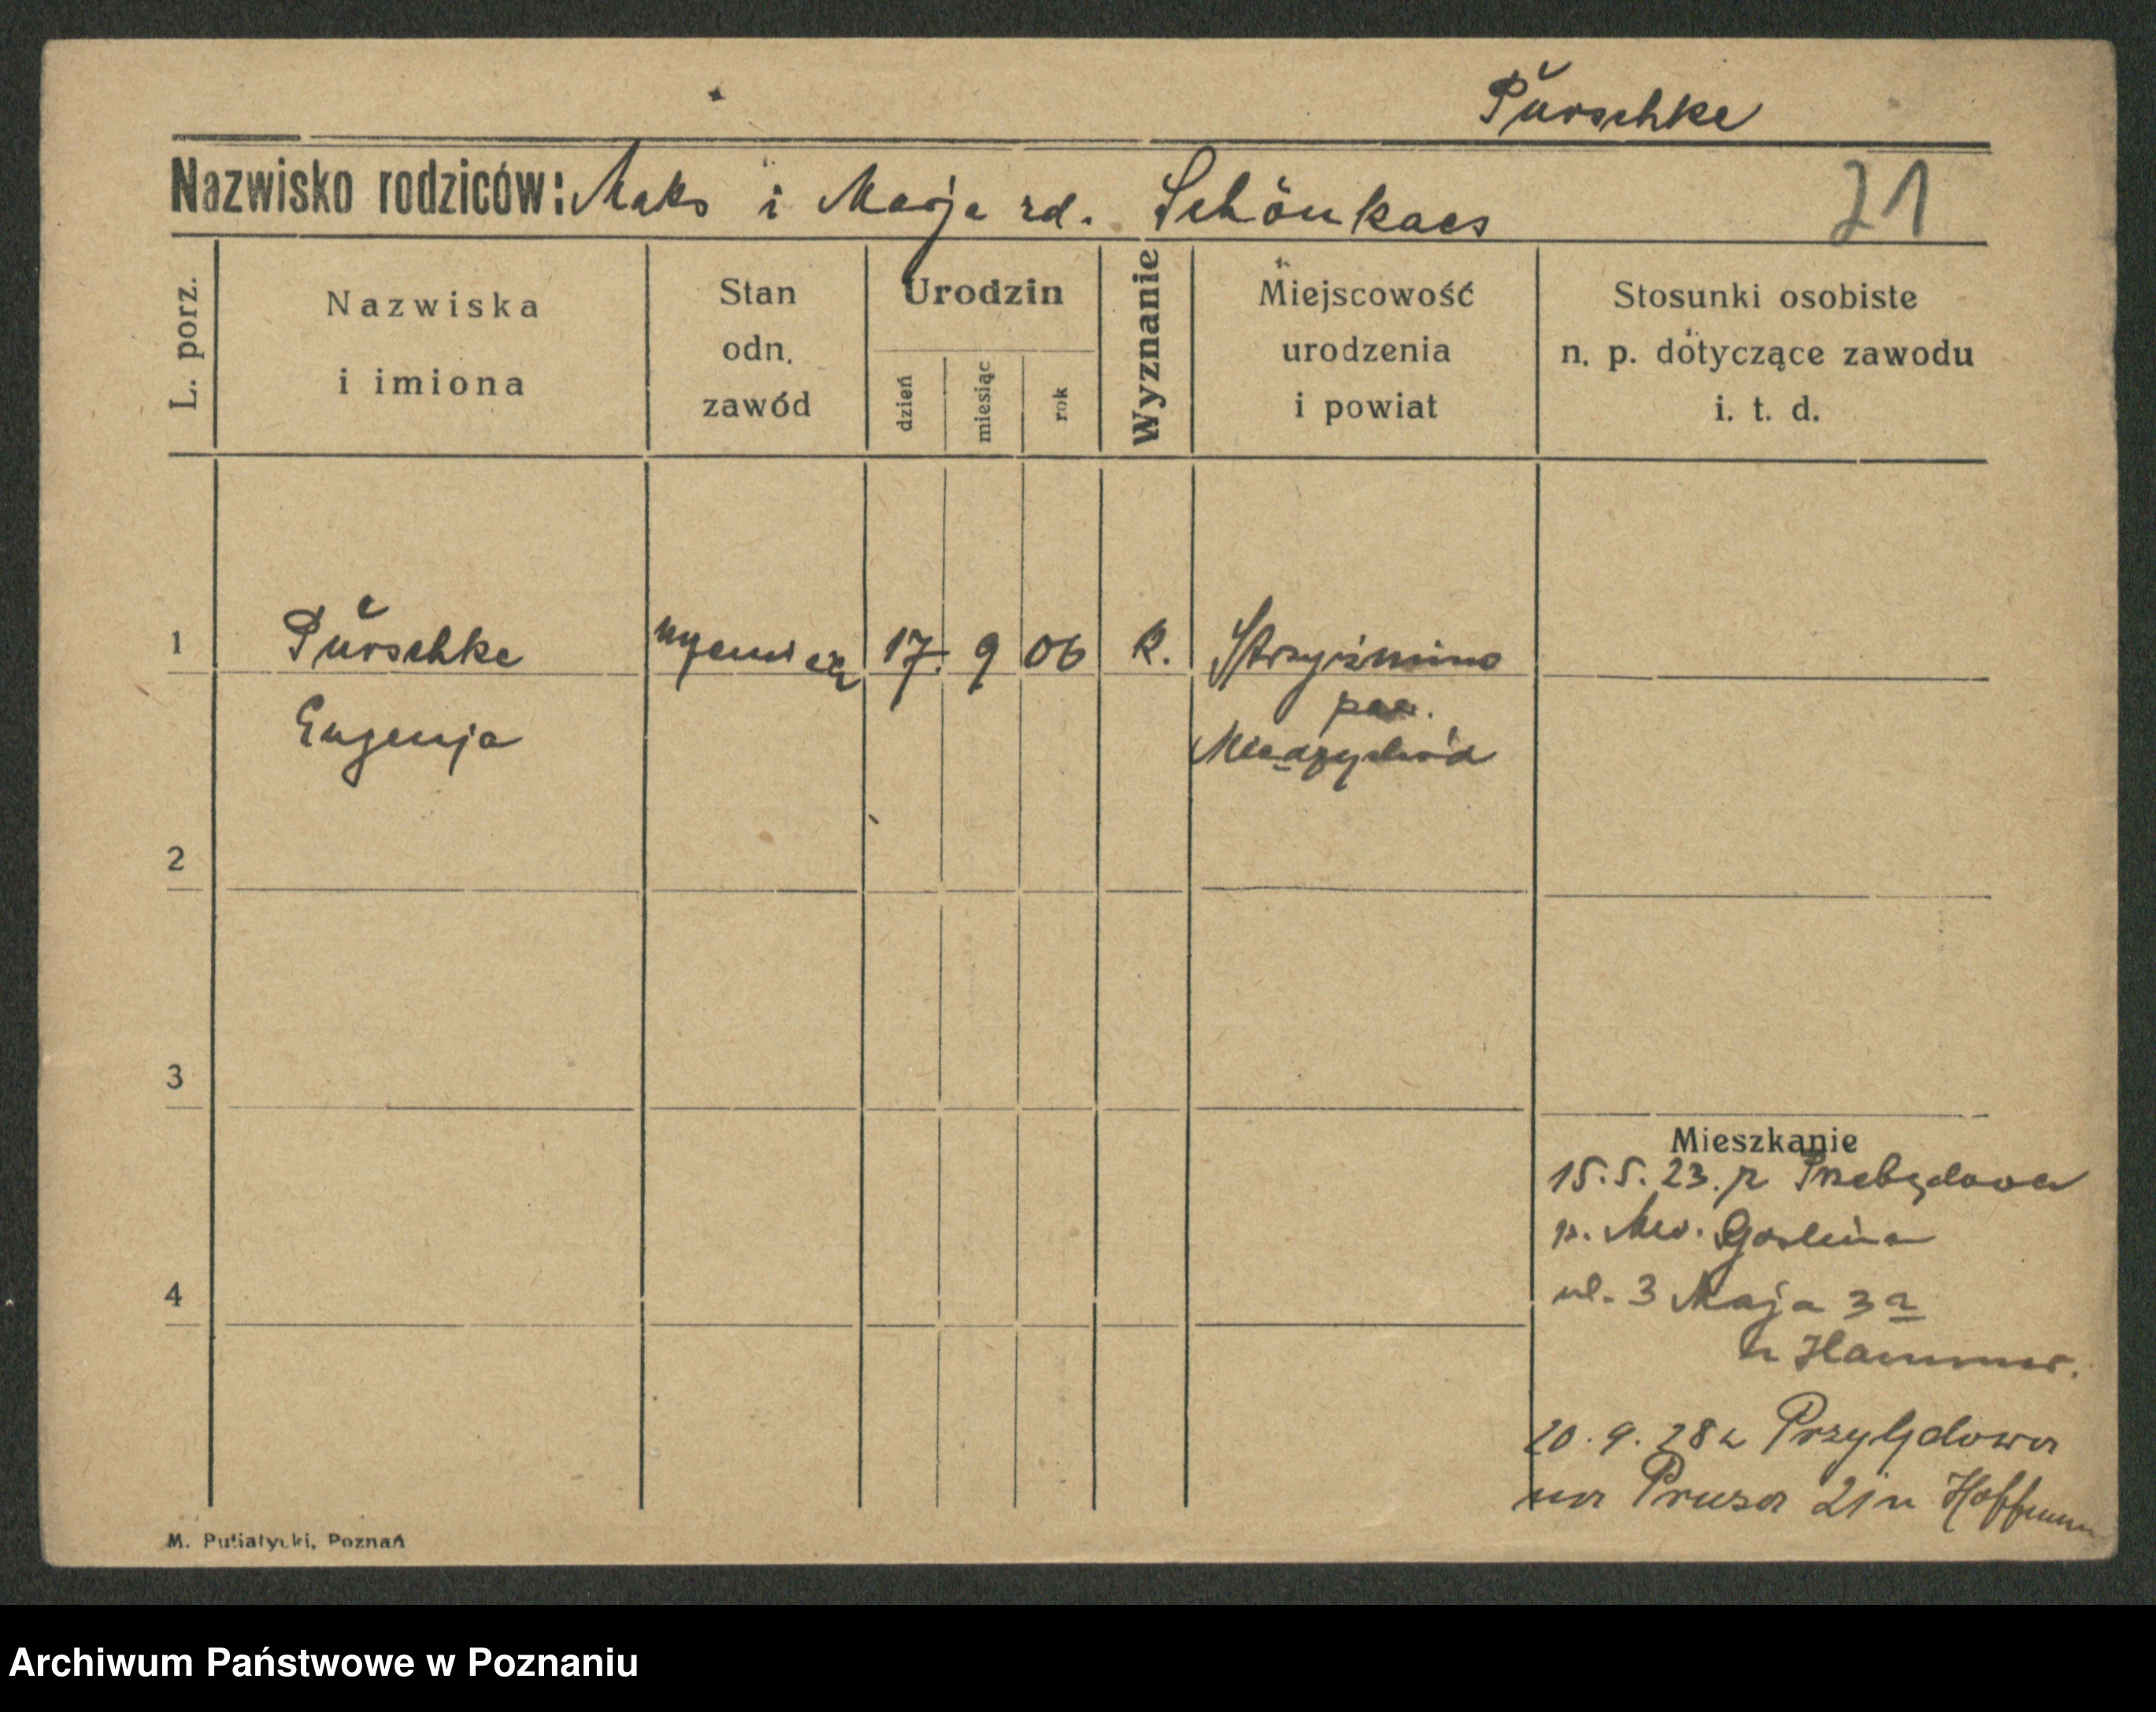 Pŭrschke
Nazwisko rodziców: Maks i Marja rd. Schönknes
21
L. porz.
Nazwiska
i imiona
Stan
odn.
zawód
Urodzin
dzień
miesiąc
rok
Wyznanie
Miejscowość
urodzenia
i powiat
Stosunki osobiste
n. p. dotyczące zawodu
i. t. d.
1 Pŭrschke uczenica 17. 9 06 k. Strzyżmino
Eugenja
pow.
Międzychód
2
3
4
Mieszkanie
15.5.23. z Przebędowa
p. Mur. Goślina
ul. 3 Maja 3a
u Hammer.
20.9.28 z Przybydowa
na Prusa 21 u Hoffmann
M. Putiatycki, Poznań
Archiwum Państwowe w Poznaniu